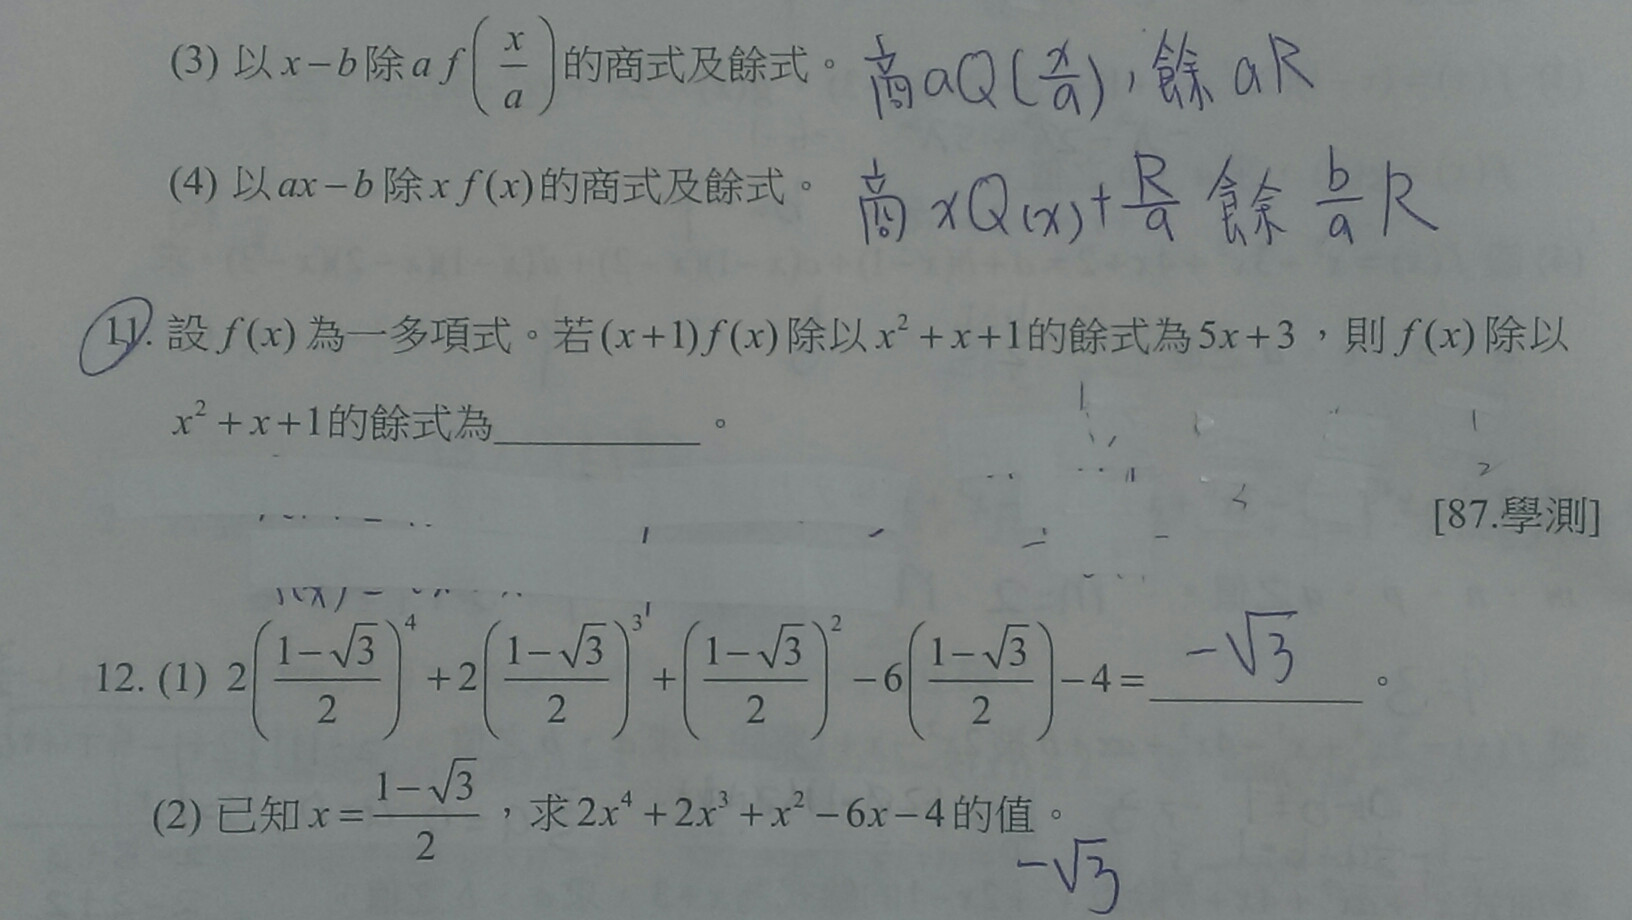 (3) 以 x−b 除 a f(x/a) 的商式及餘式。 商 aQ(x/a)，餘 aR
(4) 以 ax−b 除 x f(x) 的商式及餘式。 商 xQ(x)+R/a 餘 b/a R
11. 設 f(x) 為一多項式。若 (x+1)f(x) 除以 x²+x+1 的餘式為 5x+3，則 f(x) 除以
x²+x+1 的餘式為__________。
[87.學測]
12. (1) 2((1−√3)/2)⁴+2((1−√3)/2)³+((1−√3)/2)²−6((1−√3)/2)−4= −√3 。
(2) 已知 x=(1−√3)/2，求 2x⁴+2x³+x²−6x−4 的值。
−√3